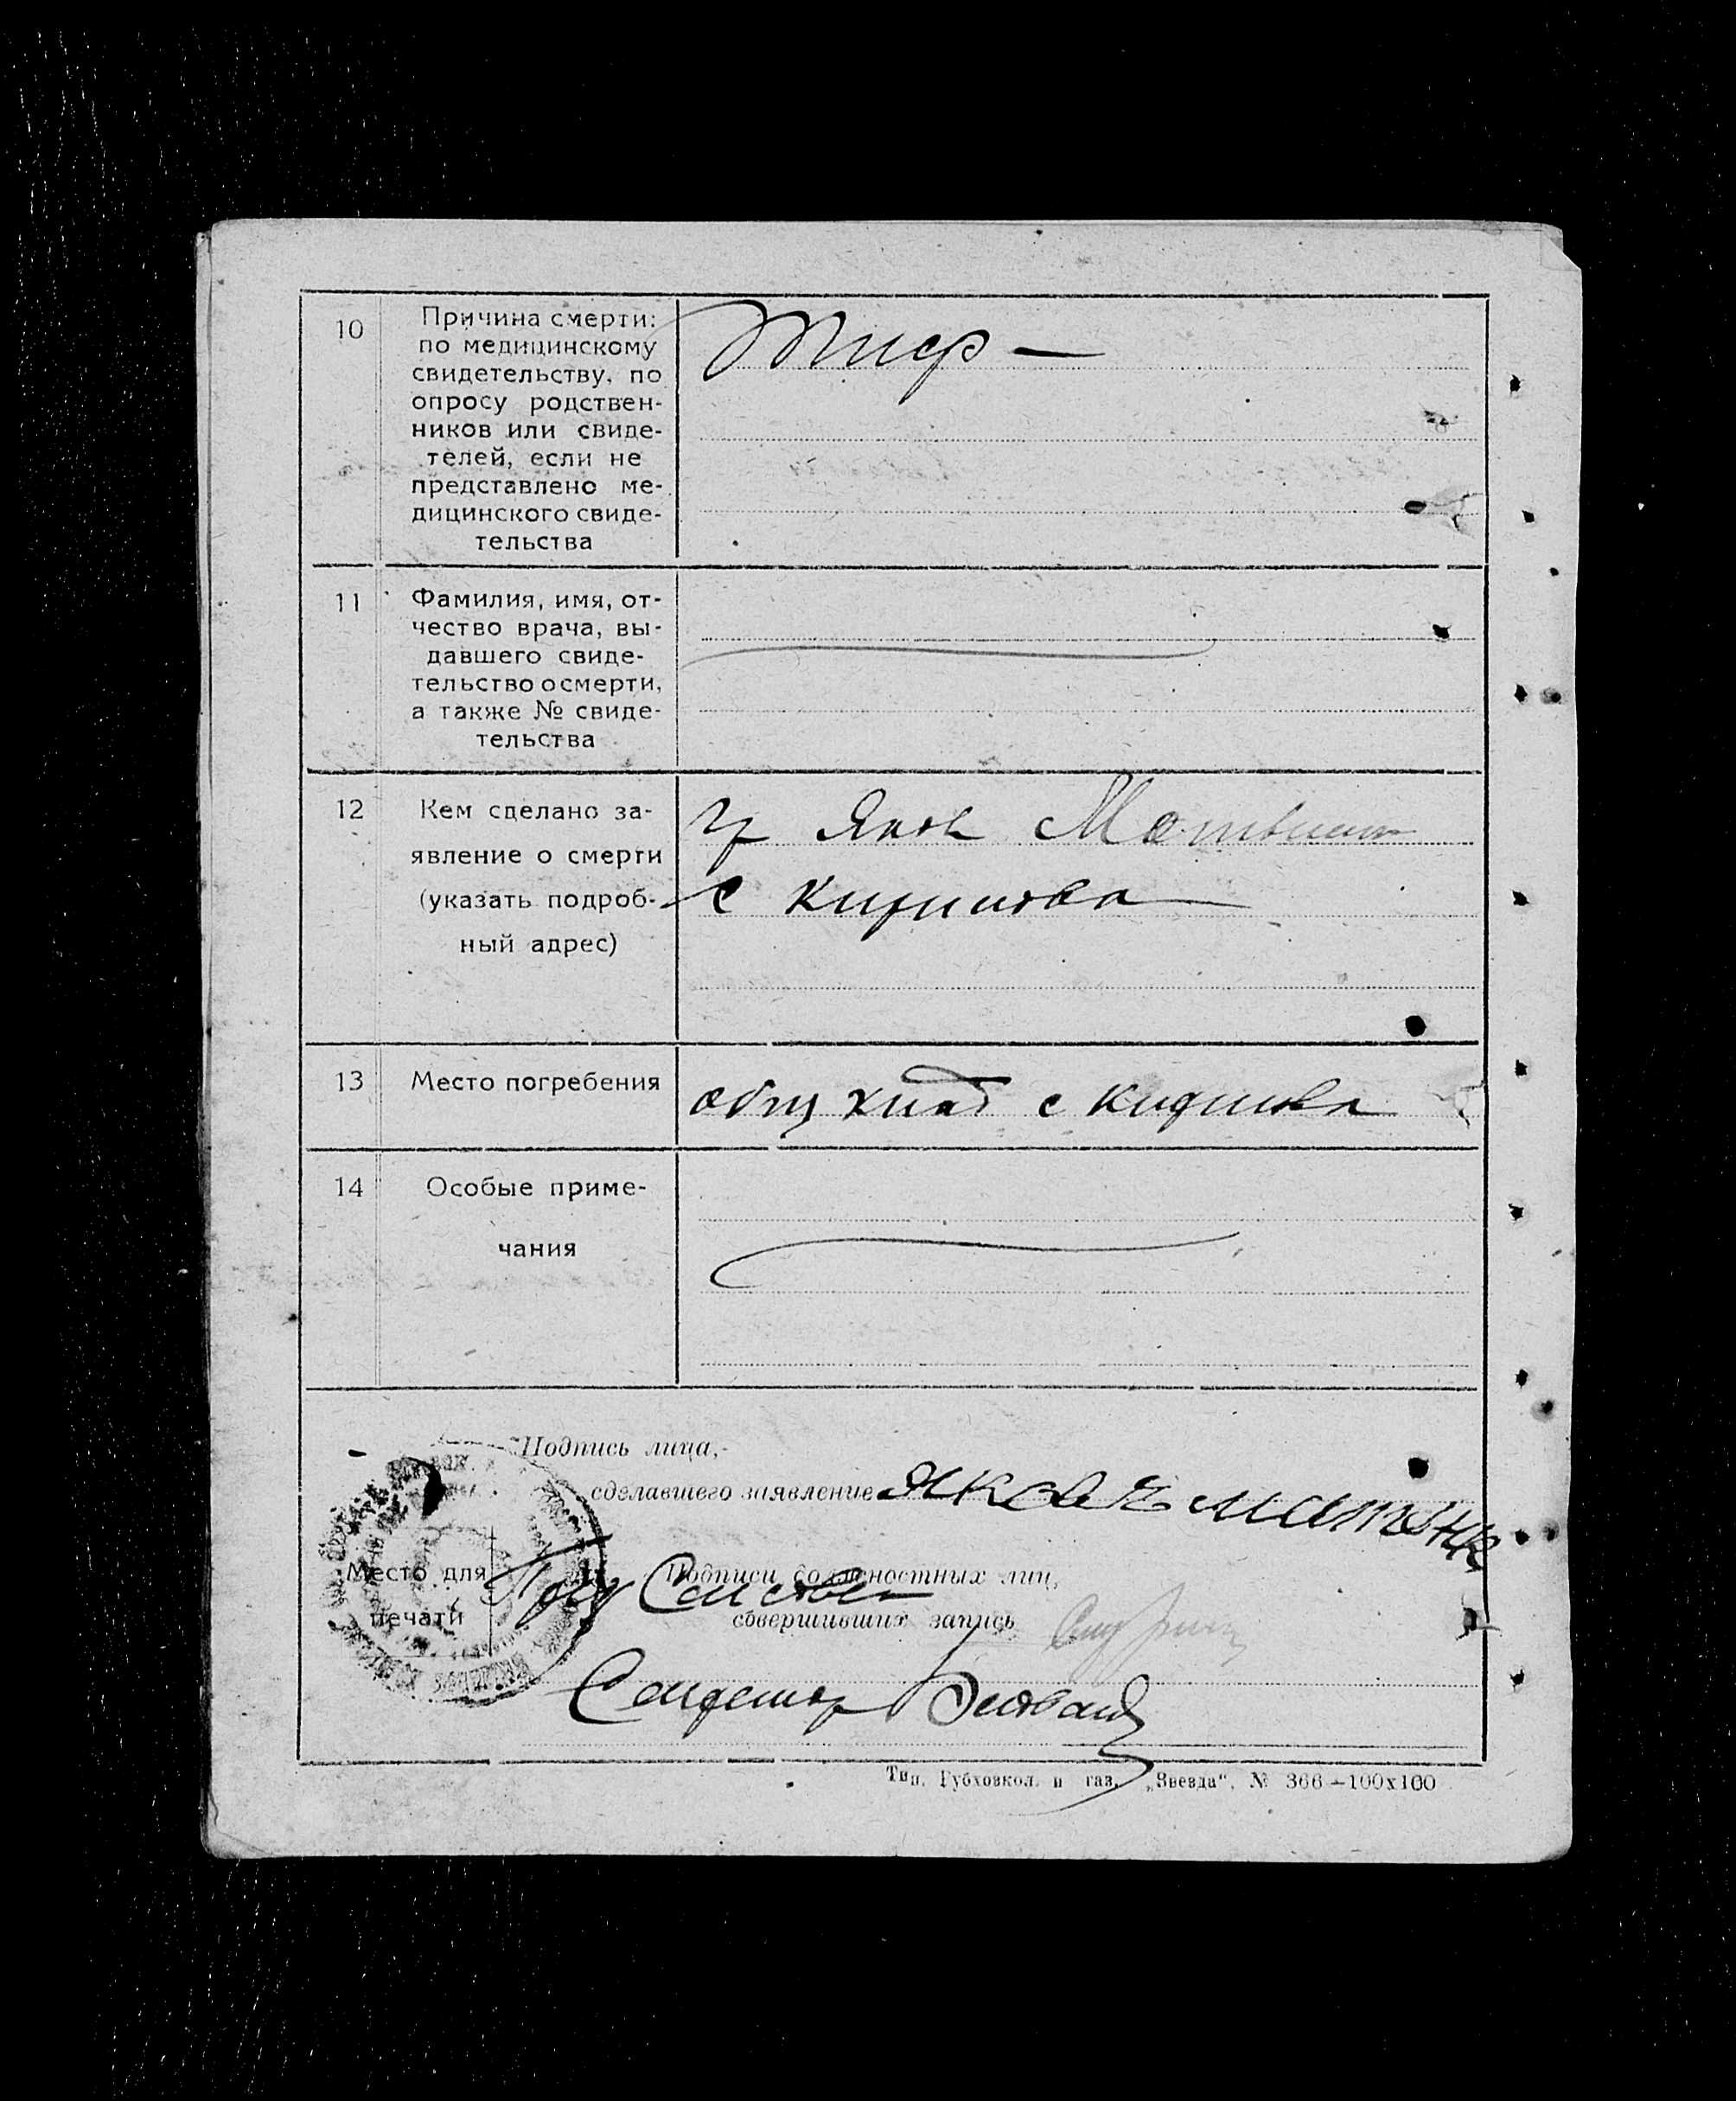 10
Причина смерти:
по медицинскому
свидетельству, по
опросу родствен-
ников или свиде-
телей, если не
представлено ме-
дицинского свиде-
тельства
Тиф —
11
Фамилия, имя, от-
чество врача, вы-
давшего свиде-
тельство о смерти,
а также № свиде-
тельства
12
Кем сделано за-
явление о смерти
(указать подроб-
ный адрес)
гр Яков
с
13
Место погребения
общ клад с
14
Особые приме-
чания
Подпись лица,
сделавшего заявление Яковъ
Место для
печати
Подписи должностных лиц,
совершивших запись
Пред Сельсовета
Секретарь
Тип. Губховкол. и газ. „Звезда“, № 366—100х100